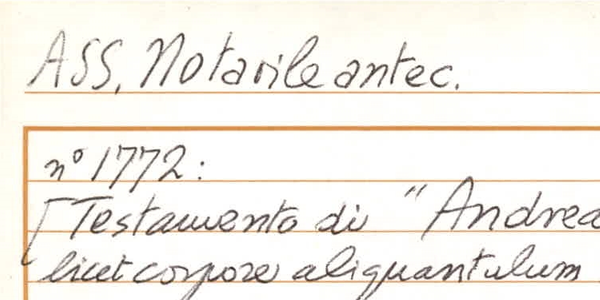 ASS, Notarile antec.
n° 1772:
[Testamento di "Andrea
licet corpore aliquantulum